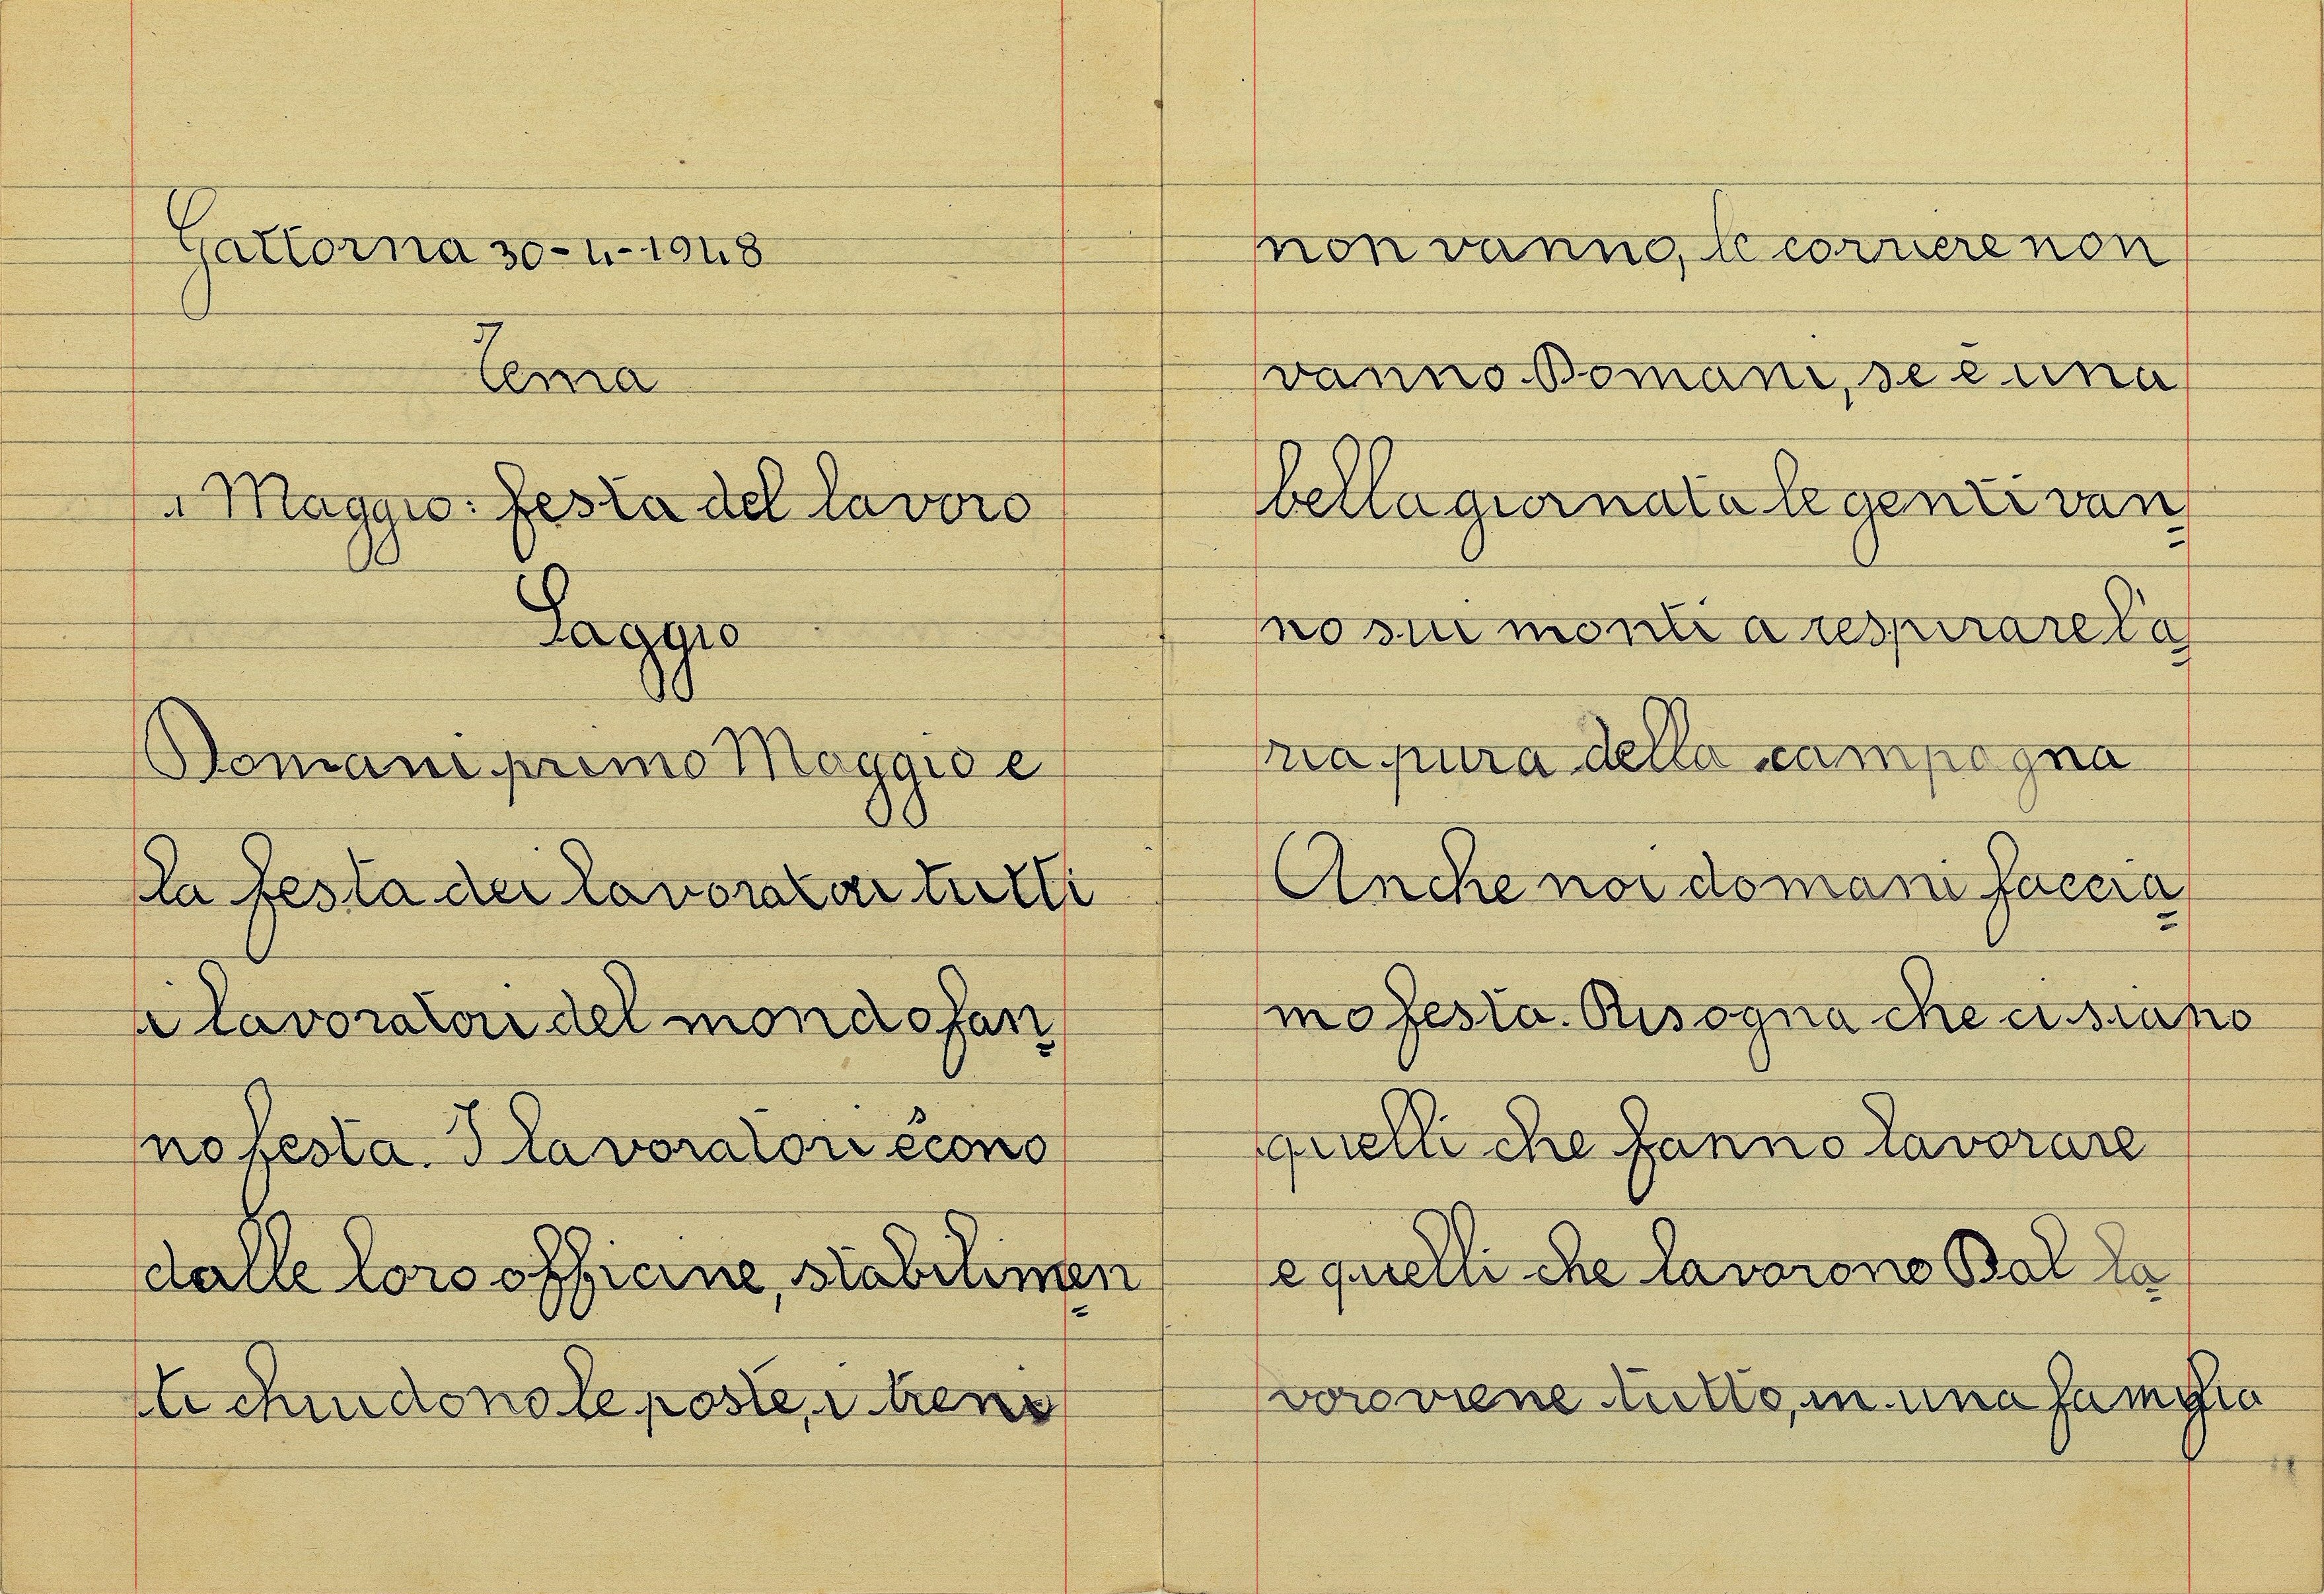 Gattorna 30-4-1948
Tema
1 Maggio: festa del lavoro
Saggio
Domani primo Maggio e
la festa dei lavoratori tutti
i lavoratori del mondo fan=
no festa. I lavoratori éscono
dalle loro officine, stabilimen=
ti chiudono le poste, i treni
non vanno, le corriere non
vanno. Domani, se è una
bella giornata le genti van=
no sui monti a respirare l'a=
ria pura della campagna
Anche noi domani faccia=
mo festa. Bisogna che ci siano
quelli che fanno lavorare
e quelli che lavorono Dal la=
voro viene tutto, in una famiglia